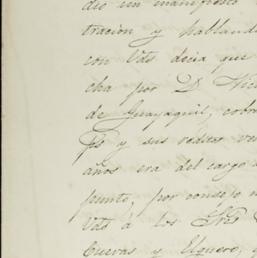 dio un manifiesto
tración y habland
con Vds decia que
cha por D. Vic
de Guayaquil, cobra
ps y sus reditos ve
años era del cargo
punto, por consejo
Vds á los Sres
Cuevas y Elguero,